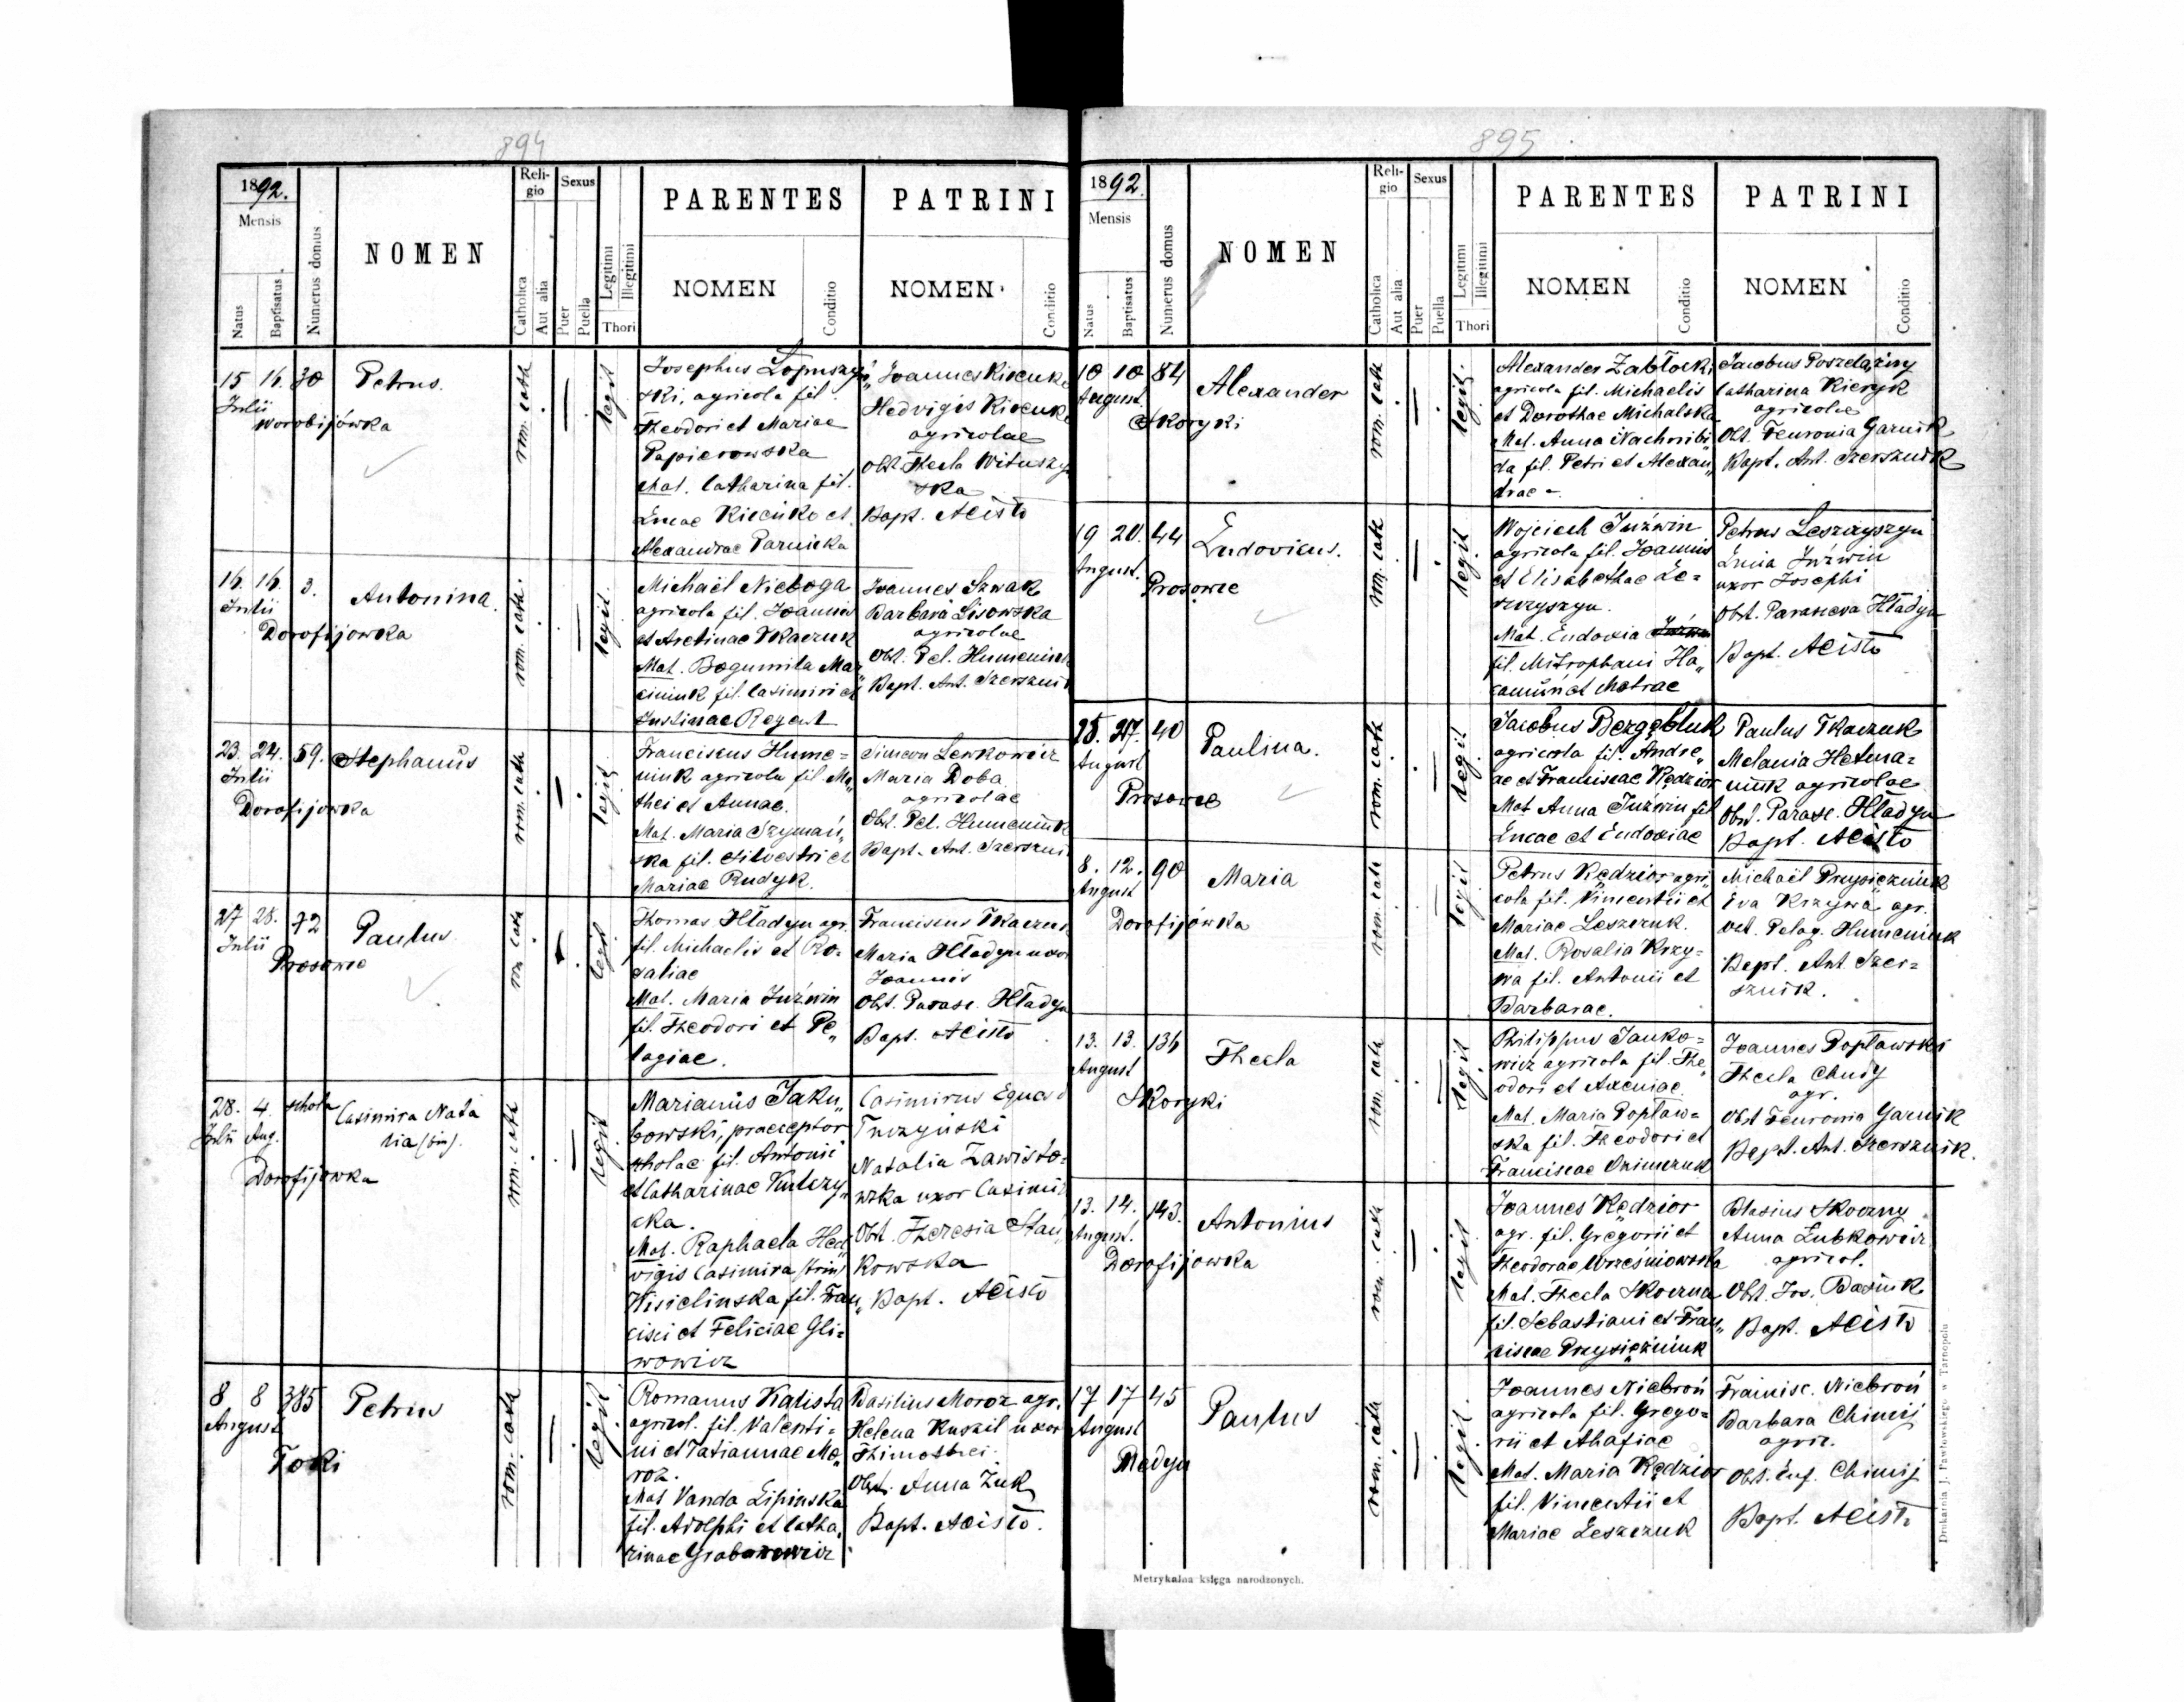 894
1892.
Mensis
Natus
Baptisatus.
Numerus domus
NOMEN
Religio
Catholica
Aut alia
Sexus
Puer
Puella
Legitimi
Illegitimi
Thori
PARENTES
NOMEN
Conditio
PATRINI
NOMEN
Conditio
15 16. 30
Julii
Worobijówka
Petrus.
rom. cath
legit
Josephus Łopuszyń„
ski, agricola fil.
Theodori et Mariae
Papierowska
Mat. Catharina fil.
Lucae Kicenko et
Alexandrae Parnicka
Joannes Kicenko
Hedvigis Kicenko
agricolae
Obst. Thecla Wituszyń
ska
Bapt. Acisło
16. 16. 3.
Julii
Dorofijowka
Antonina.
rom. cath.
legit.
Michaël Nieboga
agricola fil. Joannis
et Tkaczuk
Mat. Bogumila Mar„
ciniuk fil. Casimiri et
Justinae Regent
Joannes Szwak
Barbara Lisowska
agricolae
Obst. Pel. Humeniuk
Bapt. Ant. Szersznik
23. 24. 59.
Julii
Dorofijowka
Stephanus
rom. cath
legit.
Franciscus Hume=
niuk agricola fil. Ma„
thei et Annae.
Mat. Maria Szymań„
ska fil. Silvestri et
Mariae Rudyk.
Simeon Lewkowicz
Maria Doba
agricolae
Obst. Pel. Humeniuk
Bapt. Ant. Szerszni
27 28. 72
Julii
Prosowce
Paulus
rom cath
legit
Thomas Hładyn agr.
fil. Michaelis et Ro=
saliae
Mat. Maria Juźwin
fil. Theodori et Pe„
lagiae.
Franciscus Tkaczuk
Maria Hładyn uxor
Joannis
Obst. Parasc. Hładyn
Bapt. Acisło
28. 4. schola
Julii Aug.
Dorofijowka
Casimira Nata
lia (bin).
rom. cath
legit
Marianus Jaku„
bowski, praeceptor
scholae fil. Antonii
et Catharinae Kulczy„
cka.
Mat. Raphaela Hed„
vigis Casimira (trin)
Kisielinska fil. Fran„
cisci et Feliciae Gli=
wowicz
Casimirus Eques d
Turzyński
Natalia Zawisto=
wska uxor Casimiri
Obst. Theresia Stań„
kowska
Bapt. Acisło
8 8 385
August
Toki
Petrus
rom. cath
legit
Romanus Kalista
agricol. fil. Valenti=
ni et Tatiannae Mo„
roz.
Mat Vanda Lipinska
fil. Adolphi et Catha„
rinae Grabonowicz
Basilius Moroz agr.
Helena Kuszil uxor
Thimothei.
Obst. Anna Zuk
Bapt. Acisło.
895
1892.
Mensis
Natus
Baptisatus
Numerus domus
NOMEN
Religio
Catholica
Aut alia
Sexus
Puer
Puella
Legitimi
Illegitimi
Thori
PARENTES
NOMEN
Conditio
PATRINI
NOMEN
Conditio
10 10 84
August
Skoryki
Alexander
rom. cath
legit.
Alexander Zabłocki
agricola fil. Michaelis
et Dorothae Michalska
Mat. Anna Nachnibi
da fil. Petri et Alexan„
drae
Jacobus Poszelażny
Catharina Kieryk
agricolae
Obst. Feuronia Garnik
Bapt. Ant. Szersznik
19 20. 44
August.
Prosowce
Ludovicus.
rom. cath
legit
Wojciech Juźwin
agricola fil. Joannis
et Elisabethae Le=
szczyszyn.
Mat. Eudoxia Juźwin
fil. Mitrophani Ha„
et Motrae
Petrus Leszczyszyn
Lucia Juźwin
uxor Josephi
Obst. Parasceva Hładyn
Bapt. Acisło
25. 27. 40
August
Prosowce
Paulina.
rom. cath
legit
Jacobus Bergębluk
agricola fil. Andre„
ae et Franciscae Kędzior
Mat Anna Juźwin fil
Lucae et Eudoxiae
Paulus Tkaczuk
Melania Hetma=
niuk agricolae
Obst. Parasc. Hładyn
Bapt. Acisło
8. 12. 90
August
Dorofijówka
Maria
rom. cath
legit
Petrus Kędzior agri„
cola fil. Vincentii et
Mariae Leszczuk.
Mat. Rosalia Krzy=
wa fil. Antonii et
Barbarae.
Michaël Przysiężniuk
Eva Krzywa agr.
Obst. Pelag. Humeniuk
Bapt. Ant Szer=
sznik.
13. 13. 136
August
Skoryki
Thecla
rom. cath
legit
Philippus Janko=
wicz agricola fil. The„
odori et Axeniae
Mat. Maria Popław=
ska fil. Theodori et
Franciscae Onimczuk
Joannes Popławski
Thecla Chudy
agr.
Obst Feuronia Garnik
Bapt. Ant. Szersznik.
13. 14. 143.
August.
Dorofijowka
Antonius
rom. cath
legit
Joannes Kędzior
agr. fil. Gregorii et
Theodorae Wrześniowska
Mat. Thecla Skoczna
fil. Sebastiani et Fran„
ciscae Przysiężniuk
Blasius Skoczny
Anna Lubkowicz
agricol.
Obst. Jos. Basiuk
Bapt. Acisło
17 17 45
August
Medyn
Paulus
rom. cath
legit.
Joannes Niebroń
agricola fil. Grego=
rii et Ahafiae
Mat. Maria Kędzior
fil. Vincentii et
Mariae Leszczuk
Francisc. Niebroń
Barbara Chimij
agric.
Obst. Euf. Chimij
Bapt. Acisło
Metrykalna księga narodzonych.
Drukarnia J. Pawłowskiego w Tarnopolu